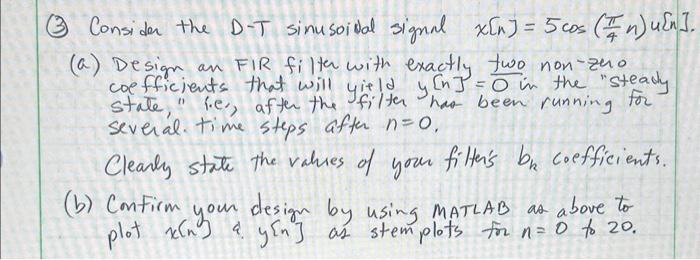 ③ Consider the D-T sinusoidal signal x[n] = 5 cos (π/4 n) u[n].
(a) Design an FIR filter with exactly two non-zero
coefficients that will yield y[n] = 0 in the "steady
state," i.e., after the filter has been running for
several time steps after n=0.
Clearly state the values of your filter's bₖ coefficients.
(b) Confirm your design by using MATLAB as above to
plot x[n] & y[n] as stem plots for n = 0 to 20.